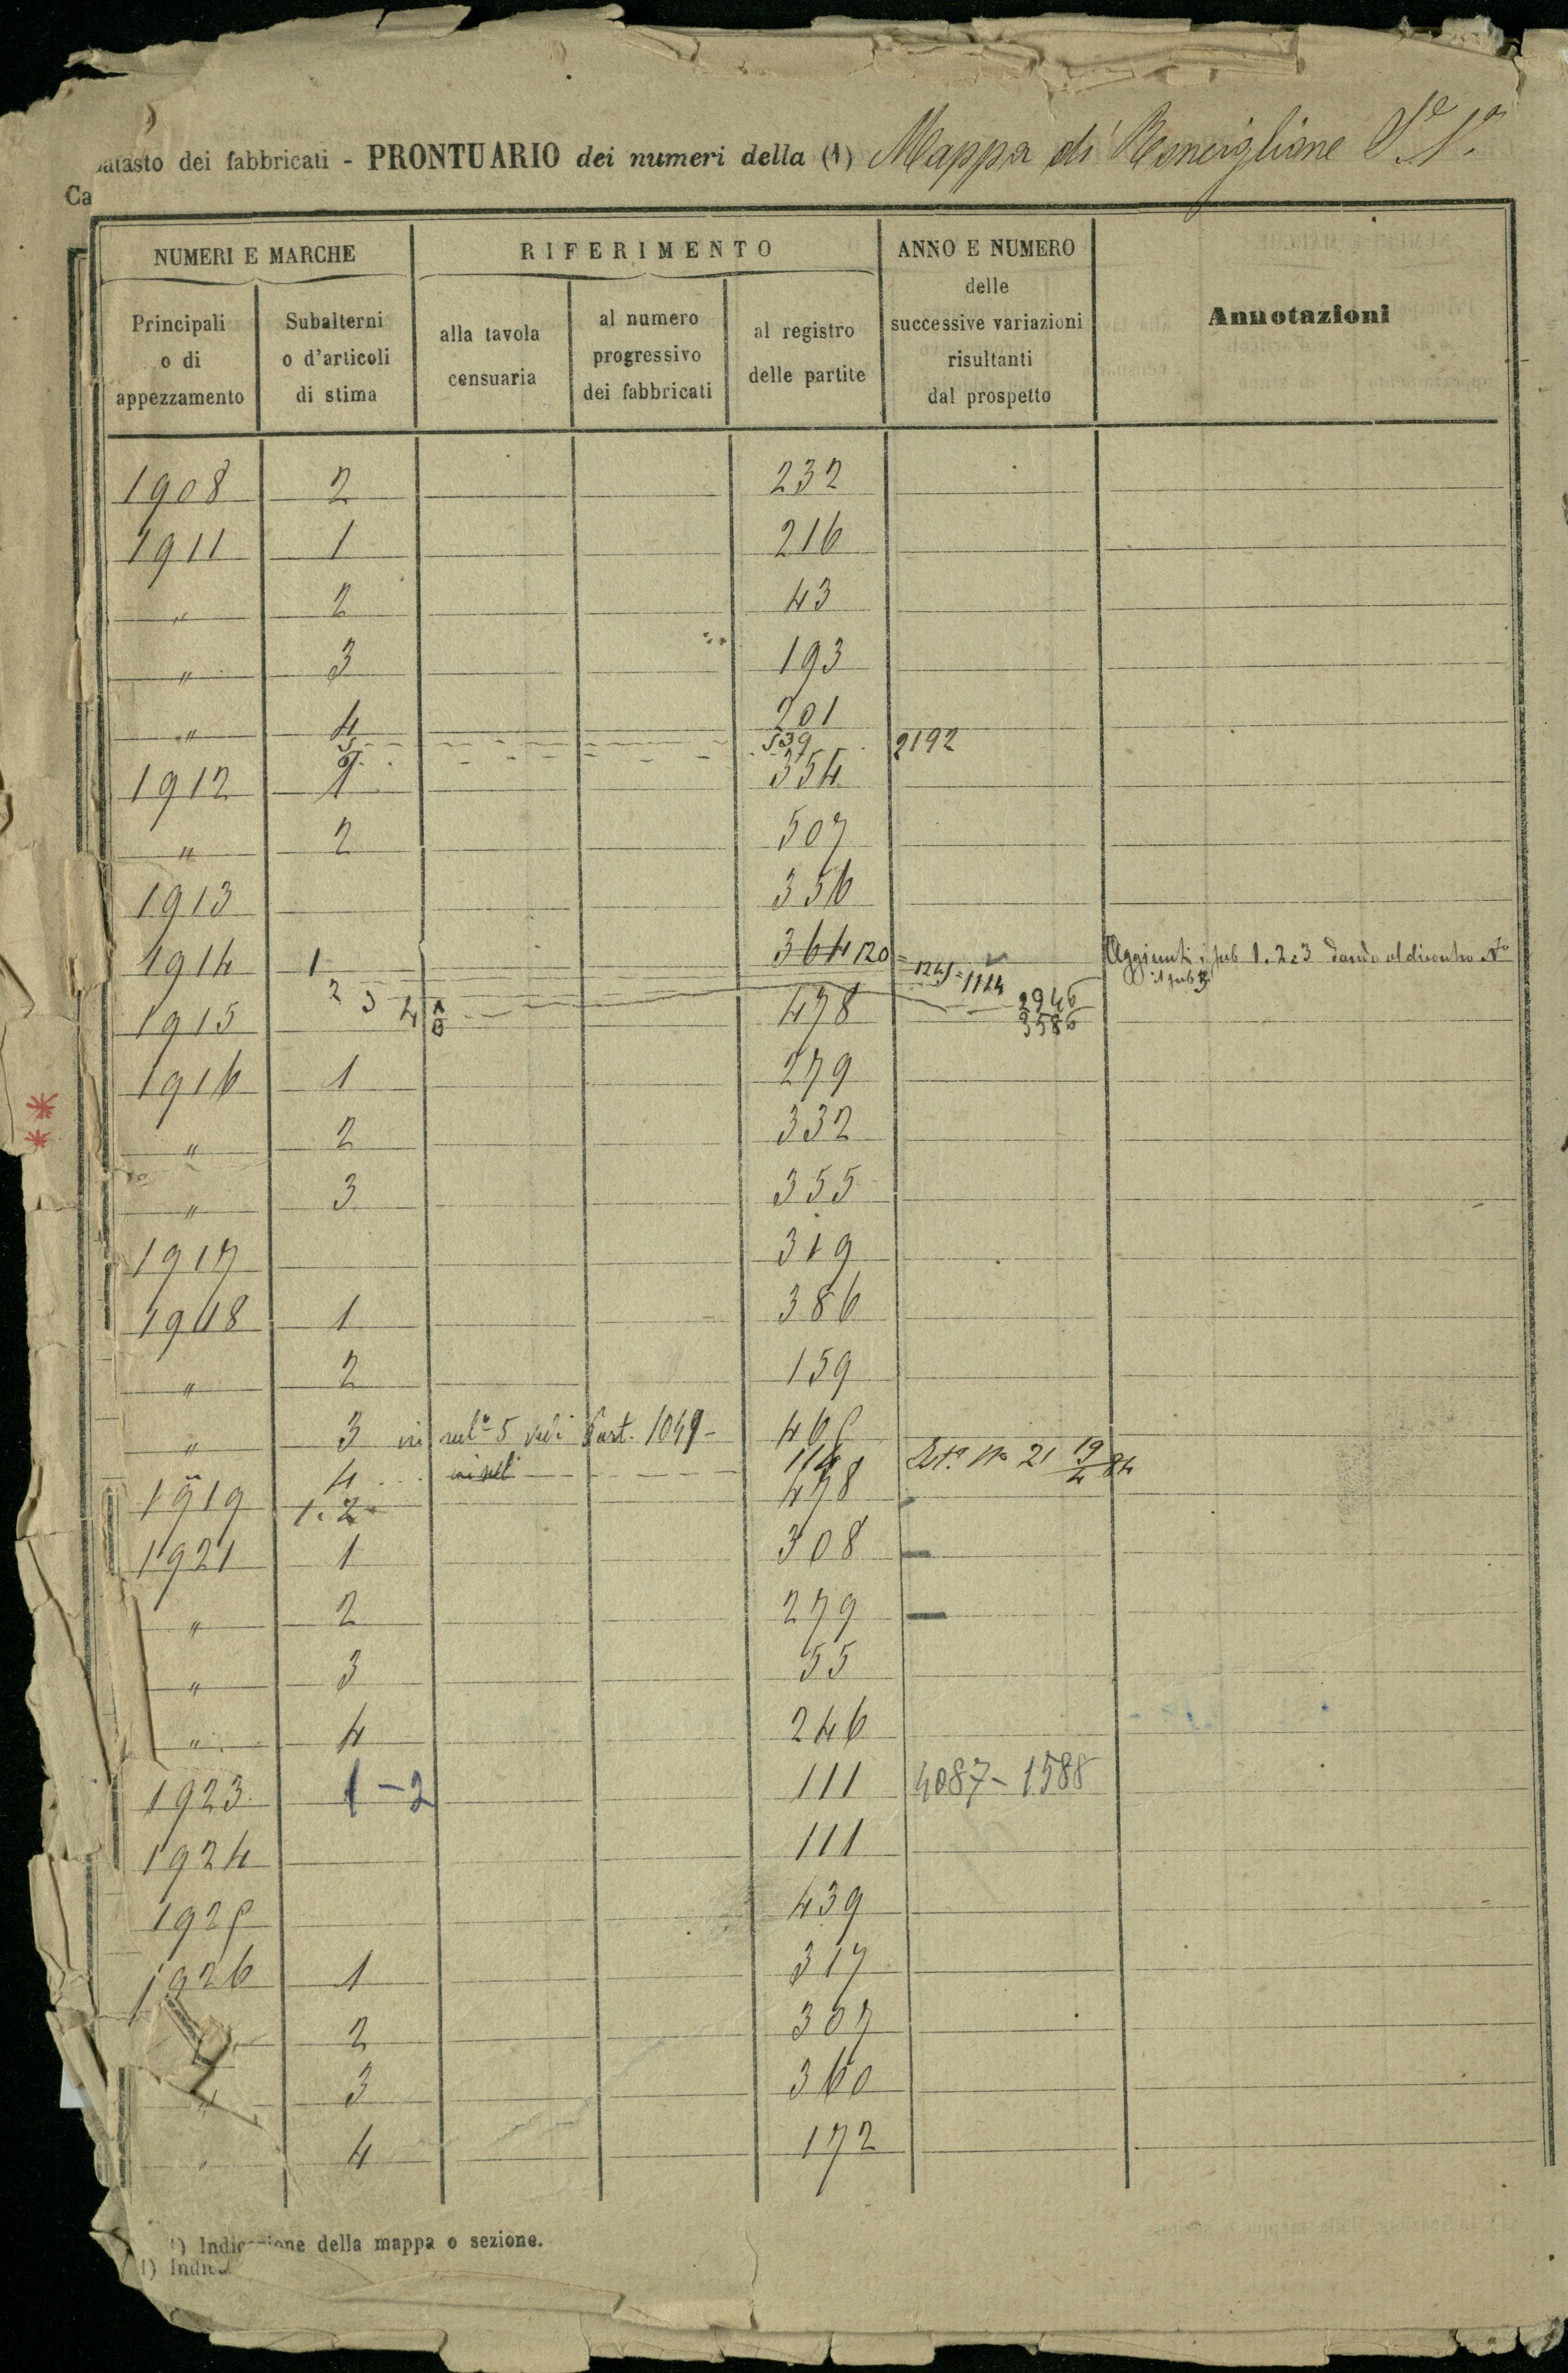 Catasto dei fabbricati - PRONTUARIO dei numeri della (1) Mappa di Ronciglione
Ca
NUMERI E MARCHE RIFERIMENTO ANNO E NUMERO delle successive variazioni risultanti dal prospetto Annotazioni
Principali o di appezzamento Subalterni o d'articoli di stima alla tavola censuaria al numero progressivo dei fabbricati al registro delle partite
1908 2 232
1911 1 216
" 2 43
" 3 193
" 4 201
5 539 2192
1912 1 354
" 2 507
1913 356
1914 1 364 120 = 1245 = 1124 Aggiunti i sub 1.2.3
2 3 4 2946
il sub 3
1915 478 3586
1916 1 279
" 2 332
" 3 355
1917 319
1918 1 386
" 2 159
" 3 in sul 5 vedi Part. 1049 - 465
" 4 114 N° 21 19/4 84
1919 1.2 478
1921 1 308
" 2 279
" 3 55
" 4 246
1923 1-2 111 4087-1588
1924 111
1925 439
1926 1 317
2 307
" 3 360
" 4 172
1) Indicazione della mappa o sezione.
1) Indica